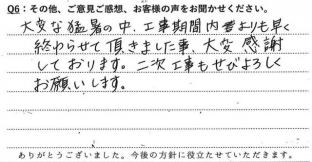 Q6：その他、ご意見ご感想、お客様の声をお聞かせください。
大変な猛暑の中、工事期間内よりも早く
終わらせて頂きました事、大変 感謝
しております。二次工事もぜひよろしく
お願いします。
ありがとうございました。今後の方針に役立たせていただきます。